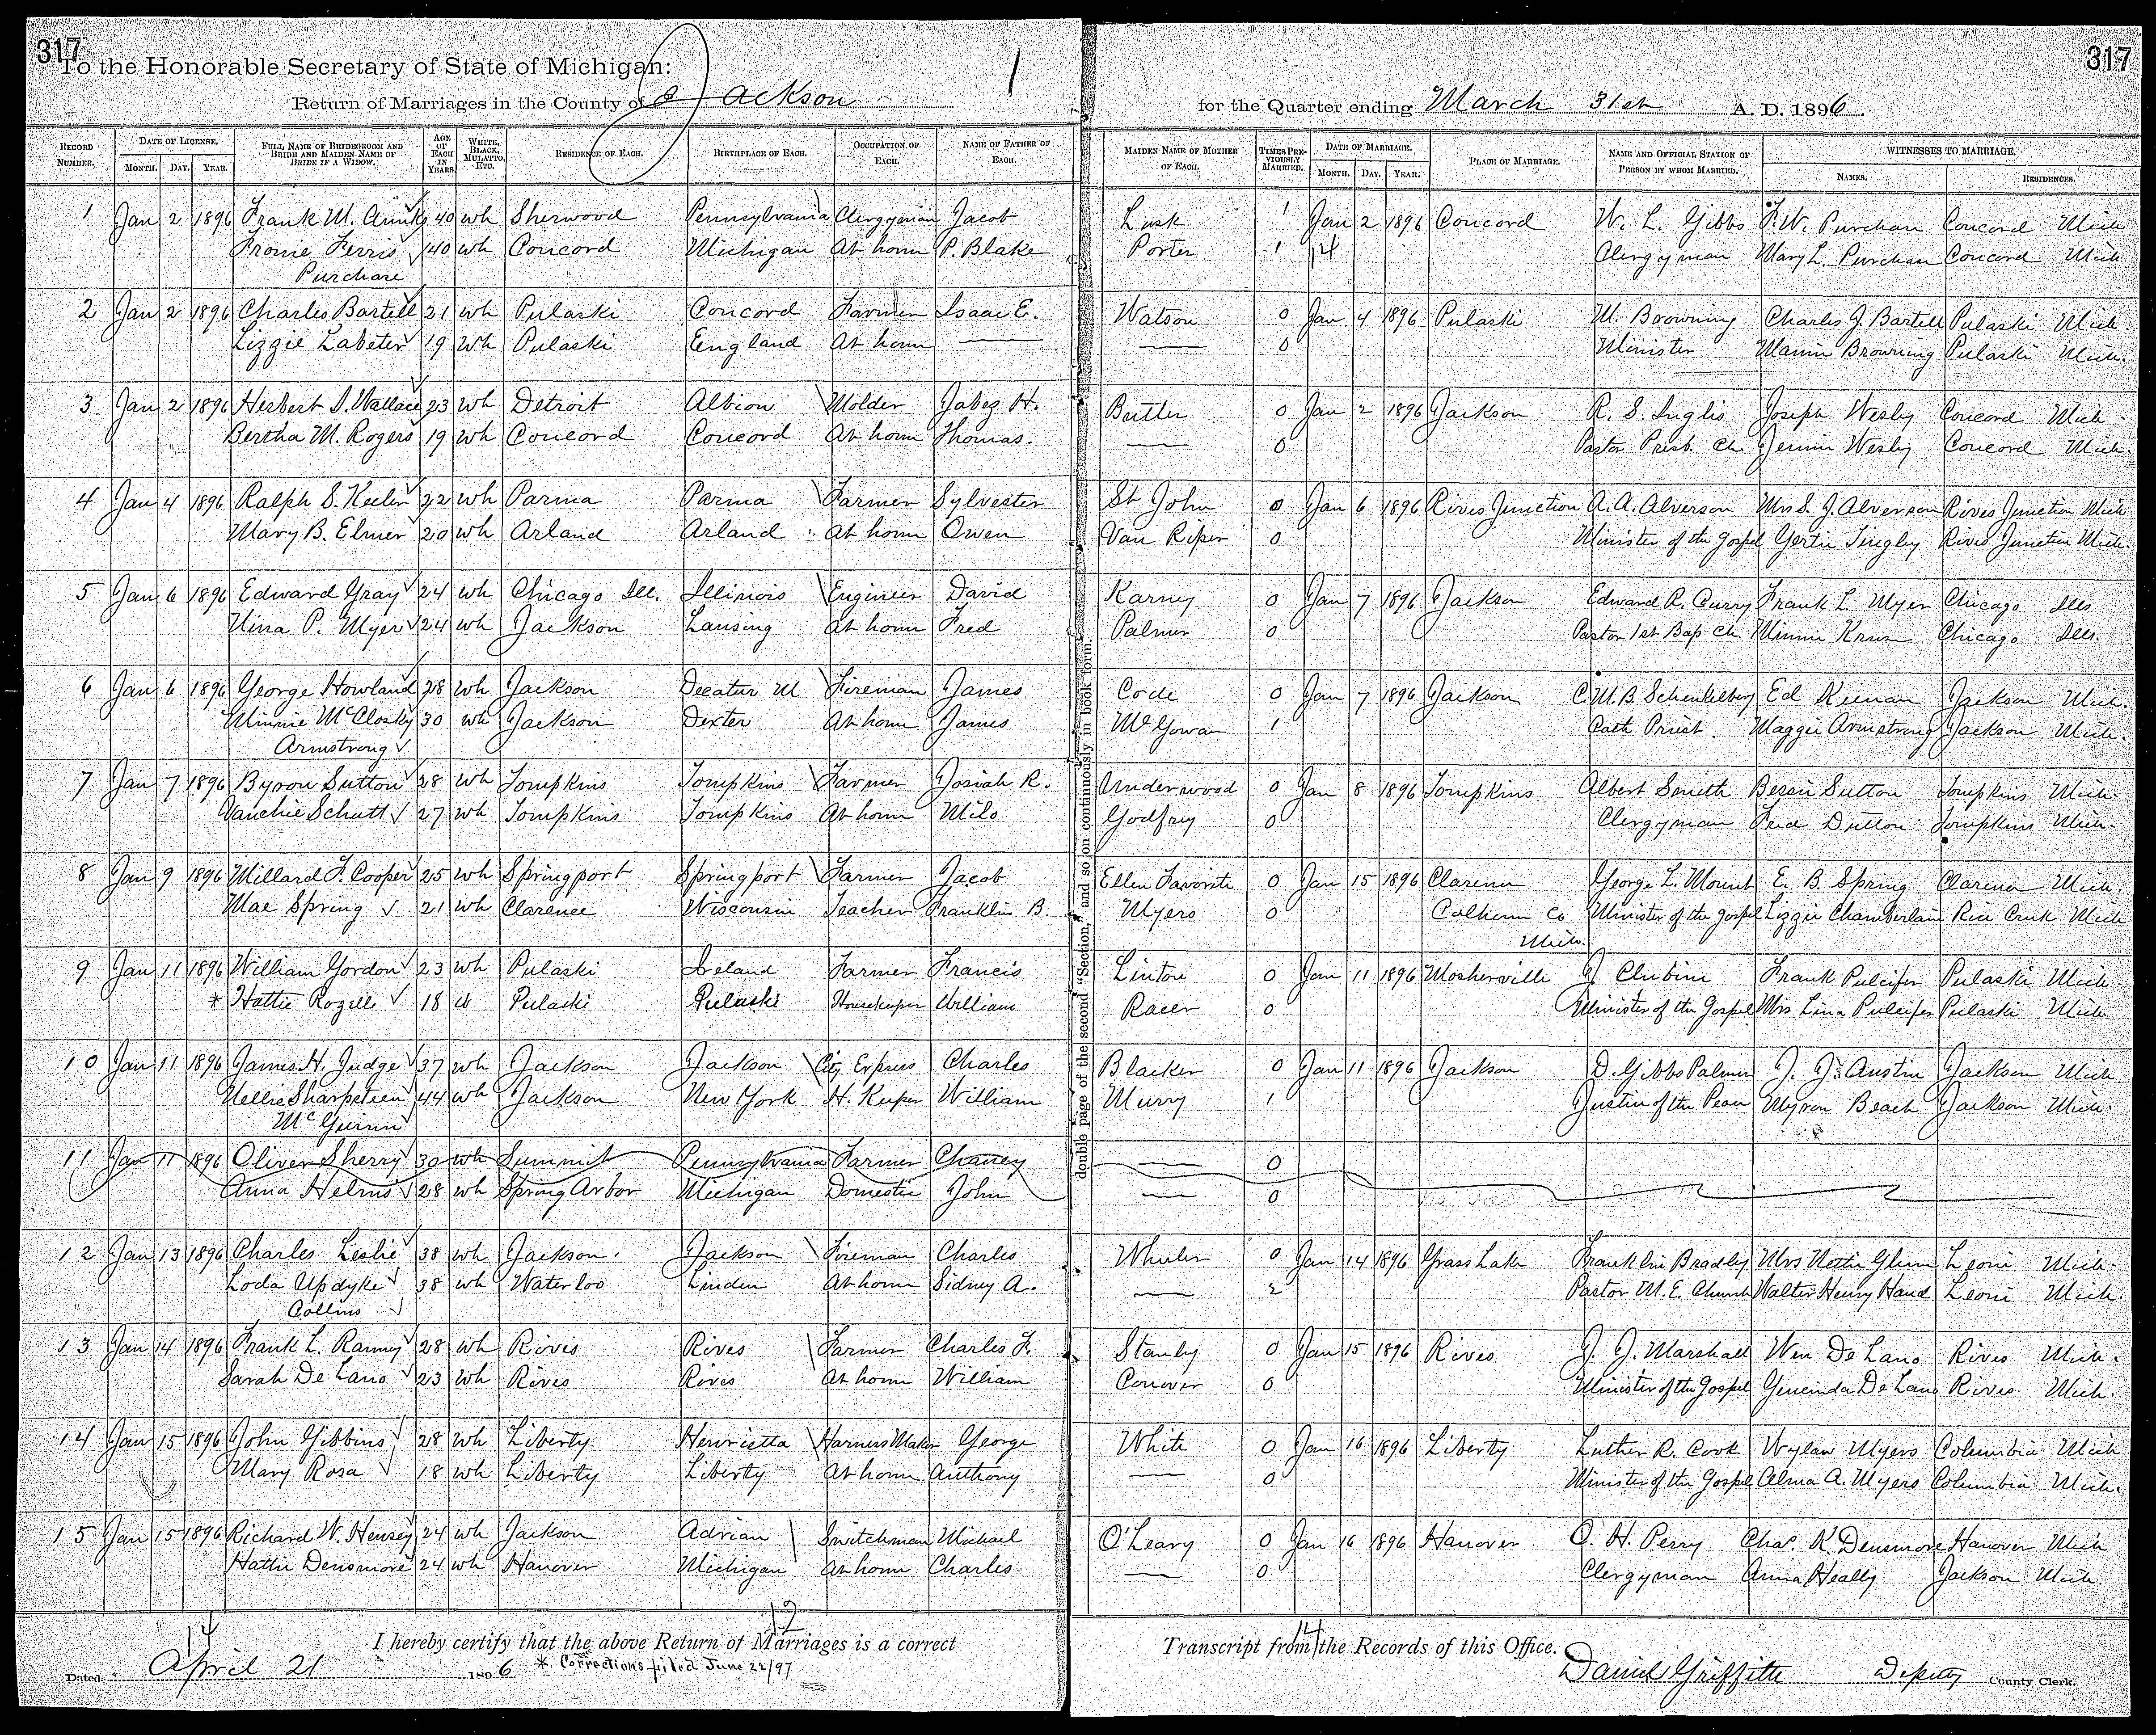 317
317
To the Honorable Secretary of State of Michigan:
1
Return of Marriages in the County of Jackson
for the Quarter ending March 31st A. D. 1896.
RECORD NUMBER.
DATE OF LICENSE.
MONTH. DAY. YEAR.
FULL NAME OF BRIDEGROOM AND BRIDE AND MAIDEN NAME OF BRIDE IF A WIDOW.
AGE OF EACH IN YEARS.
WHITE, BLACK, MULATTO, ETC.
RESIDENCE OF EACH.
BIRTHPLACE OF EACH.
OCCUPATION OF EACH.
NAME OF FATHER OF EACH.
MAIDEN NAME OF MOTHER OF EACH.
TIMES PREVIOUSLY MARRIED.
DATE OF MARRIAGE.
MONTH. DAY. YEAR.
PLACE OF MARRIAGE.
NAME AND OFFICIAL STATION OF PERSON BY WHOM MARRIED.
WITNESSES TO MARRIAGE.
NAMES. RESIDENCES.
1 Jan 2 1896 Frank M. 40 wh Sherwood Pennsylvania Clergyman Jacob Lusk 1 Jan 2 1896 Concord W. L. Gibbs F. W. Purchase Concord Mich
Fronie Ferris 40 wh Concord Michigan At home P. Blake Porter 1 14 Clergyman Mary L. Purchase Concord Mich
Purchase
2 Jan 2 1896 Charles Bartell 21 wh Pulaski Concord Farmer Isaac E. Watson 0 Jan 4 1896 Pulaski M. Browning Charles J. Bartell Pulaski Mich.
Lizzie Labeter 19 wh Pulaski England At home — — 0 Minister Mamie Browning Pulaski Mich.
3 Jan 2 1896 Herbert S. Wallace 23 wh Detroit Albion Molder Jabez H. Butler 0 Jan 2 1896 Jackson R. S. Inglis Joseph Wesly Concord Mich.
Bertha M. Rogers 19 wh Concord Concord At home Thomas. — 0 Pastor Presb. Ch. Jennie Wesly Concord Mich.
4 Jan 4 1896 Ralph S. Keeler 22 wh Parma Parma Farmer Sylvester St John 0 Jan 6 1896 Rives Junction A. A. Alverson Mrs S. J. Alverson Rives Junction Mich
Mary B. Elmer 20 wh Arland Arland At home Owen Van Riper 0 Minister of the Gospel Gertie Tingley Rives Junction Mich.
5 Jan 6 1896 Edward Gray 24 wh Chicago Ill. Illinois Engineer David Karney 0 Jan 7 1896 Jackson Edward R. Curry Frank L. Myer Chicago Ills
Nina P. Myer 24 wh Jackson Lansing At home Fred Palmer 0 Pastor 1st Bap Ch. Minnie Chicago Ills.
6 Jan 6 1896 George Howland 28 wh Jackson Decatur M Fireman James Code 0 Jan 7 1896 Jackson C. M. B. Schenkelberg Ed Keenan Jackson Mich.
Minnie McClosky 30 wh Jackson Dexter At home James McGowan 1 Cath Priest. Maggie Armstrong Jackson Mich.
Armstrong
7 Jan 7 1896 Byron Sutton 28 wh Tompkins Tompkins Farmer Josiah R. Underwood 0 Jan 8 1896 Tompkins Albert Smith Sutton Tompkins Mich.
Vanchie Schutt 27 wh Tompkins Tompkins At home Milo Godfrey 0 Clergyman Fred Dutton Tompkins Mich.
8 Jan 9 1896 Millard F. Cooper 25 wh Springport Springport Farmer Jacob Ellen Favorite 0 Jan 15 1896 Clarence George L. Mount E. B. Spring Clarence Mich.
Mae Spring 21 wh Clarence Wisconsin Teacher Franklin B. Myers 0 Calhoun Co Minister of the Gospel Lizzie Chamberlain Rice Creek Mich
Mich.
9 Jan 11 1896 William Gordon 23 wh Pulaski Ireland Farmer Francis Linton 0 Jan 11 1896 Mosherville J. Clubine Frank Pulcifer Pulaski Mich.
* Hattie Rozelle 18 w Pulaski Pulaski Housekeeper William Racer 0 Minister of the Gospel Mrs Lina Pulcifer Pulaski Mich
10 Jan 11 1896 James H. Judge 37 wh Jackson Jackson City Express Charles Blacker 0 Jan 11 1896 Jackson D. Gibbs Palmer J. J. Austin Jackson Mich
Nellie Sharpsteen 44 wh Jackson New York H. Keeper William Murry 1 Justice of the Peace Myron Beach Jackson Mich.
McGuinn
11 Jan 11 1896 Oliver Sherry 30 wh Summit Pennsylvania Farmer Chancy — 0
Anna Helms 28 wh Spring Arbor Michigan Domestic John — 0
12 Jan 13 1896 Charles Leslie 38 wh Jackson. Jackson Foreman Charles Wheeler 0 Jan 14 1896 Grass Lake Franklin Bradley Mrs Nettie Glenn Leoni Mich.
Loda Updyke 38 wh Waterloo Linden At home Sidney A. — 2 Pastor M. E. Church Walter Henry Hand Leoni Mich.
Collins
13 Jan 14 1896 Frank L. Ranney 28 wh Rives Rives Farmer Charles F. Stanley 0 Jan 15 1896 Rives J. J. Marshall Wm De Lano Rives Mich.
Sarah De Lano 23 wh Rives Rives At home William Conover 0 Minister of the Gospel Gencinda De Lano Rives Mich.
14 Jan 15 1896 John Gibbins 28 wh Liberty Henrietta Harness Maker George White 0 Jan 16 1896 Liberty Luther R. Cook Wylan Myers Columbia Mich
Mary Rosa 18 wh Liberty Liberty At home Anthony — 0 Minister of the Gospel Alma A. Myers Columbia Mich.
15 Jan 15 1896 Richard W. Hensey 24 wh Jackson Adrian Switchman Michael O'Leary 0 Jan 16 1896 Hanover O. H. Perry Chas. K. Densmore Hanover Mich
Hattie Densmore 24 wh Hanover Michigan At home Charles — 0 Clergyman Anna Heally Jackson Mich.
double page of the second "Section," and so on continuously in book form.
14 12 14
I hereby certify that the above Return of Marriages is a correct Transcript from the Records of this Office.
Dated April 21 1896 * Corrections filed June 22/97
Daniel Griffith Deputy County Clerk.